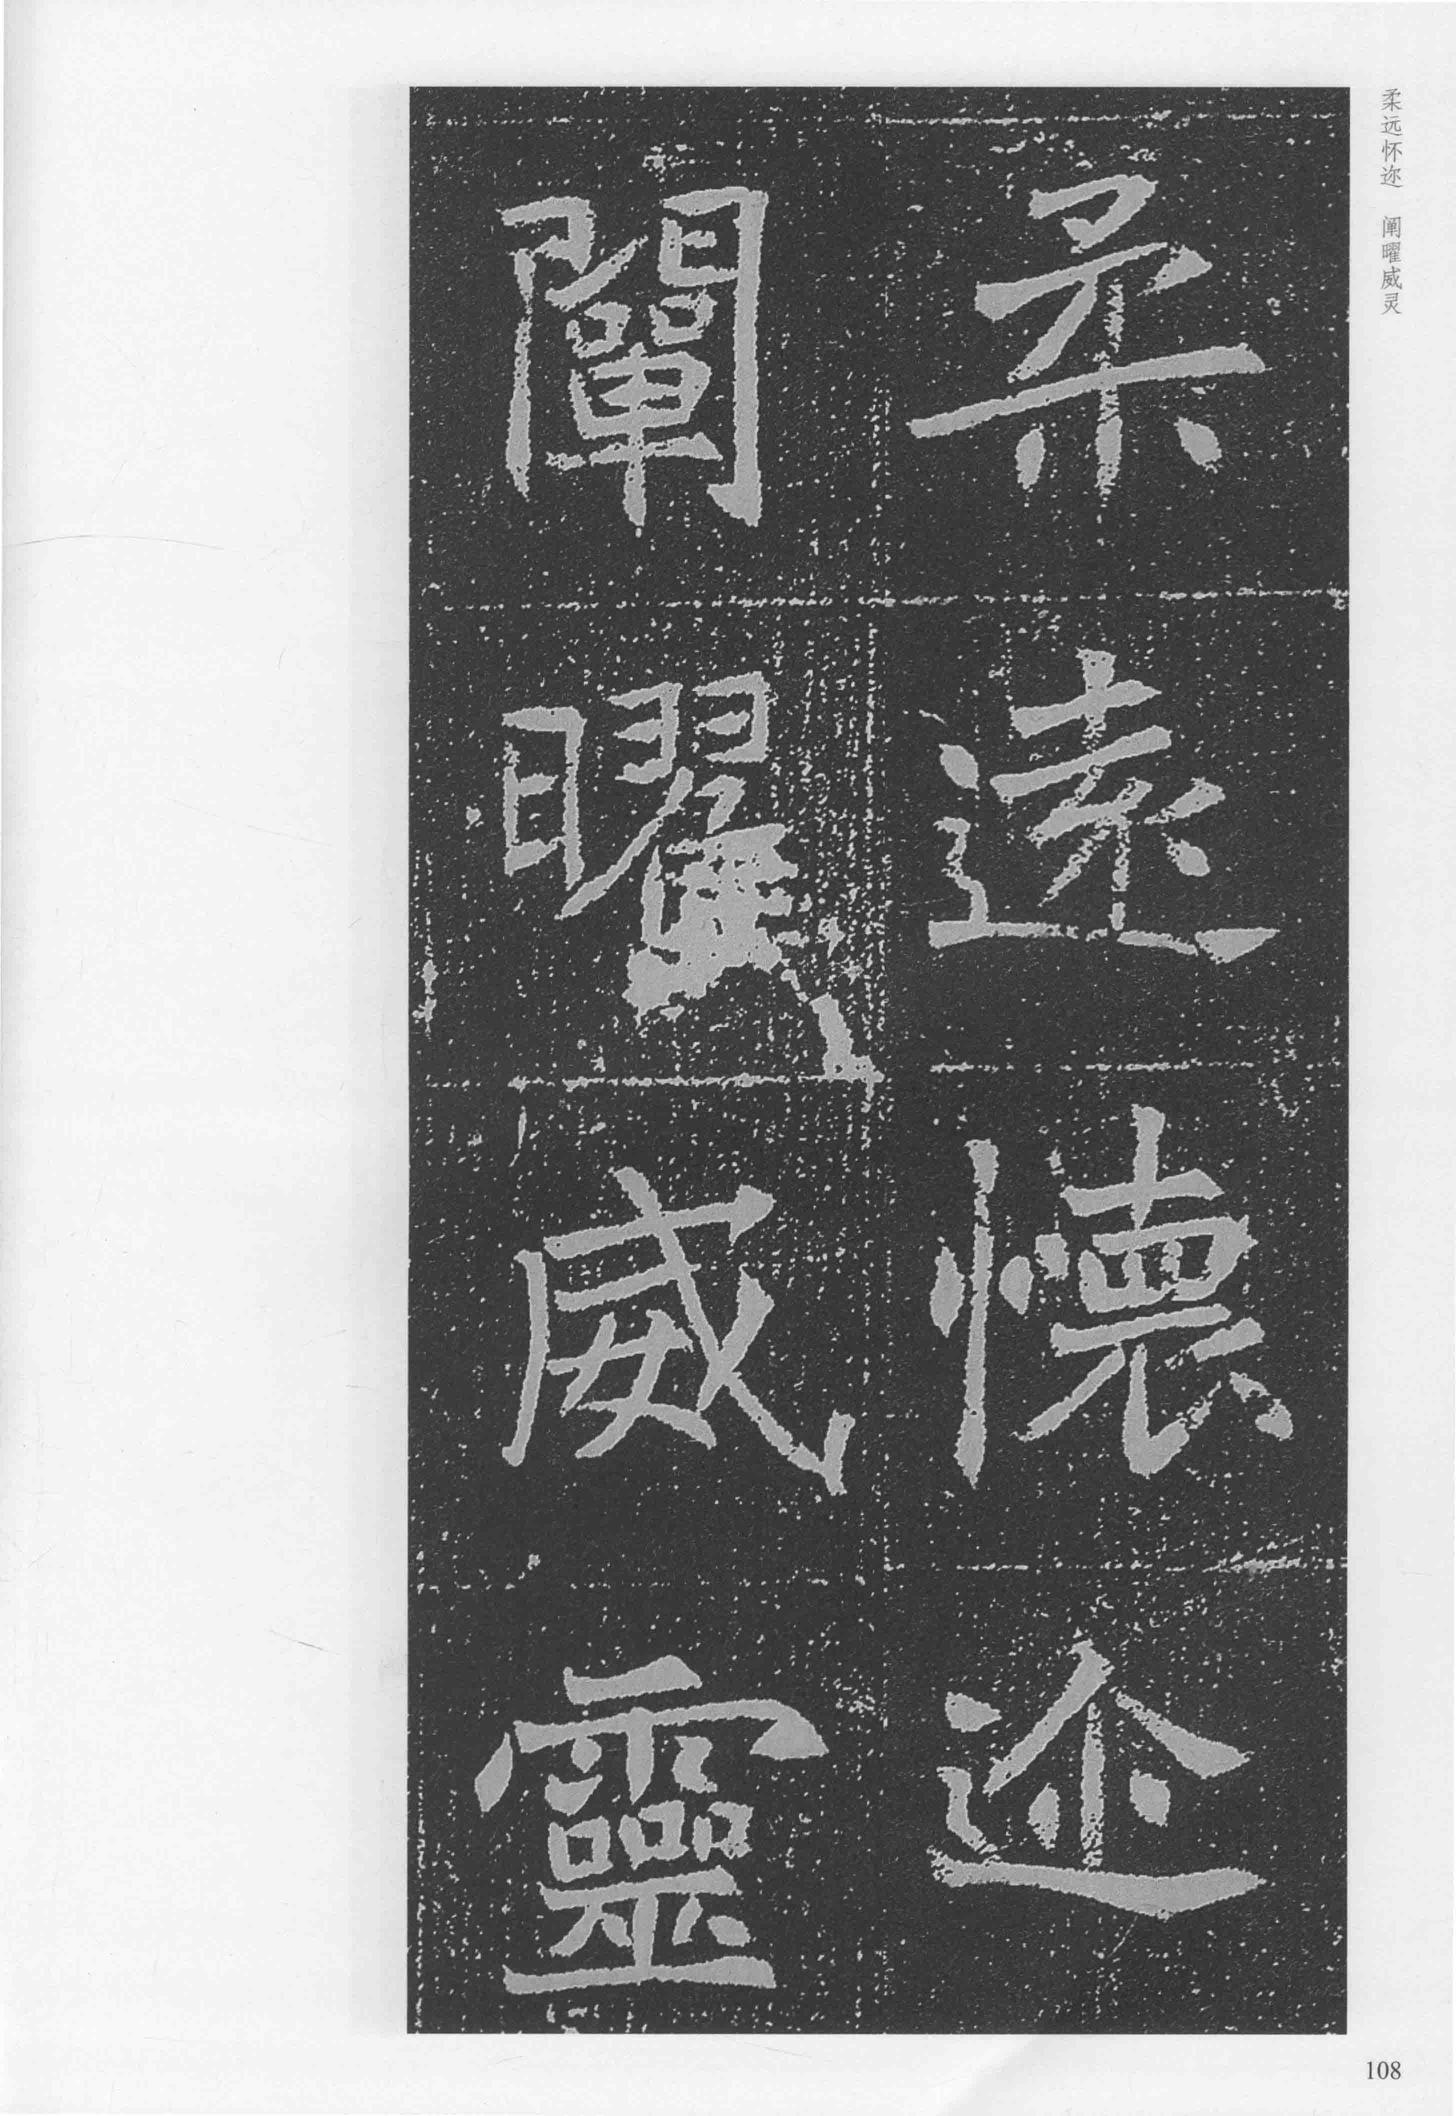 柔远怀迩　阐曜威灵
柔遠懷迩
闡曜威靈
108